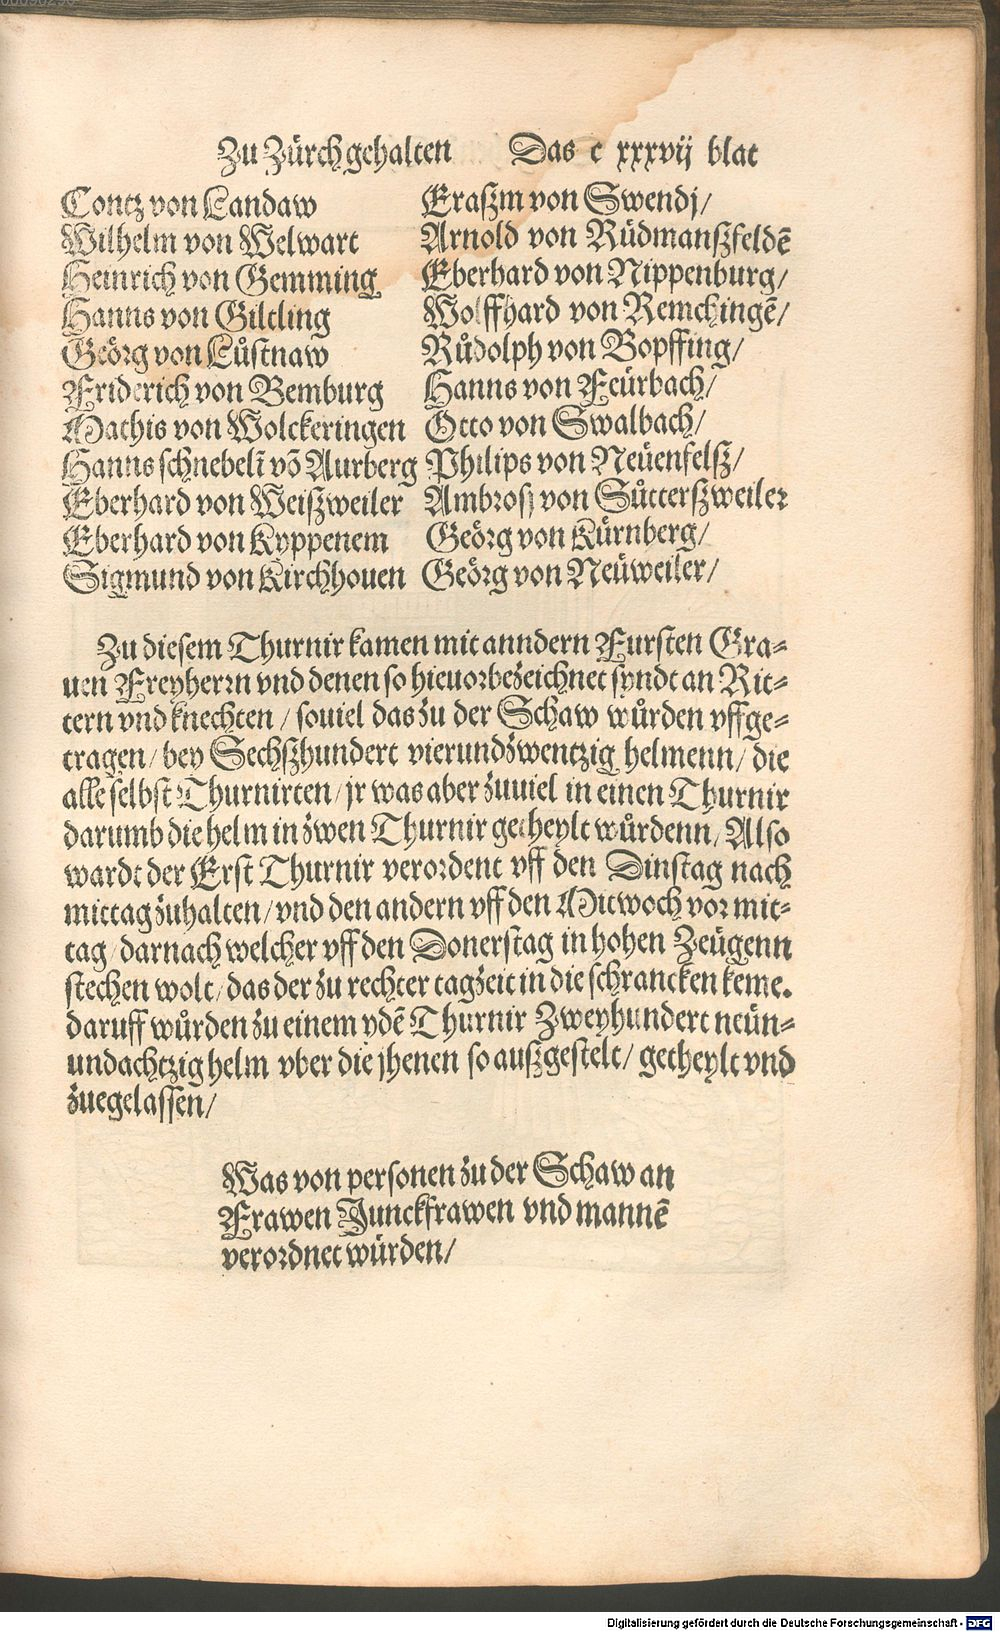 Zu Zürch gehalten Das c xxxvij blat
Contz von Landaw
Wilhelm von Welwart
Heinrich von Gemming
Hanns von Giltling
Geörg von Lůstnaw
Friderich von Bemburg
Mathis von Wolckeringen
Hanns schnebeli̅ vō Aurberg
Eberhard von Weiszweiler
Eberhard von Kyppenem
Sigmund von Kirchhouen
Eraszm von Swendj/
Arnold von Rüdmanszfeldē
Eberhard von Nippenburg/
Wolffhard von Remchingē/
Růdolph von Bopffing/
Hanns von Feürbach/
Otto von Swalbach/
Philips von Neüenfelsz/
Ambrosz von Sůtterszweiler
Geörg von Kürnberg/
Geörg von Neüweiler/
Zu diesem Thurnir kamen mit anndern Fursten Gra-
uen Freyherrn vnd denen so hieuorbezeichnet syndt an Rit-
tern vnd knechten / souiel das zu der Schaw wůrden vffge-
tragen/ bey Sechszhundert vierundzwentzig helmenn/ die
alle selbst Thurnirten/ jr was aber zuuiel in einen Thurnir
darumb die helm in zwen Thurnir getheylt wůrdenn/ Also
wardt der Erst Thurnir verordent vff den Dinstag nach
mittag zuhalten/ vnd den andern vff den Mitwoch vor mit-
tag/ darnach welcher vff den Donerstag in hohen Zeügenn
stechen wolt/ das der zu rechter tagzeit in die schrancken keme.
daruff wůrden zu einem ydē Thurnir Zweyhundert neün-
undachtzig helm vber die jhenen so auszgestelt/ getheylt vnd
zuegelassen/
Was von personen zu der Schaw an
Frawen Junckfrawen vnd mannē
verordnet würden/
Digitalisierung gefördert durch die Deutsche Forschungsgemeinschaft - DFG